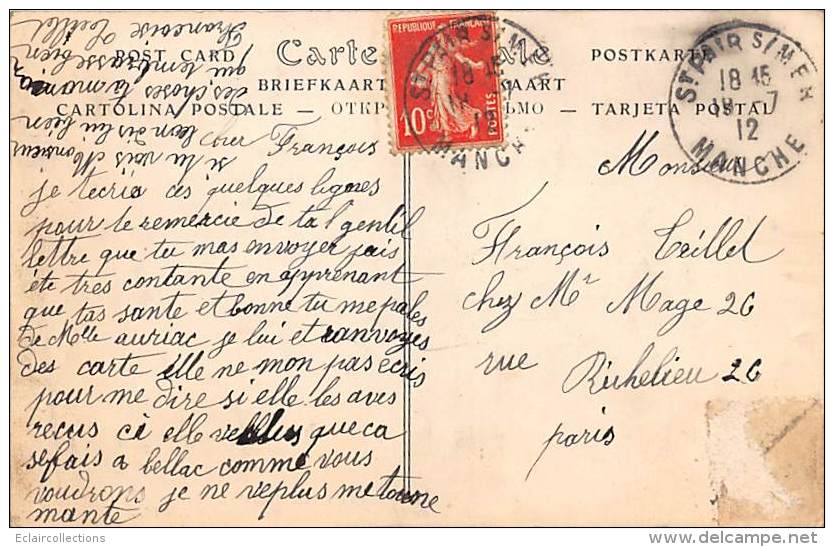 POST CARD
Carte
POSTKARTE
BRIEFKAART
CARTOLINA POSTALE
TARJETA POSTAL
REPUBLIQUE FRANÇAISE
10c
POSTES
ST PAIR S/MER
MANCHE
ST PAIR S/MER
18 15
18 - 7
12
MANCHE
cher François
je tecria ces quelques lignes
pour te remercie de ta gentil
lettre que tu mas envoyer jais
éte tres contante en apprenant
que tas sante et bonne tu me pales
de Mlle auriac je lui et ranvoyes
des carte elle ne mon pas ecris
pour me dire si elle les aves
recus ci elle que ca
se fais a bellac comme vous
voudrons je ne veplus me tourne
mante
si tu vois Monsieur
Leon dis lui bien
des choses ta maman
qui tembrasse bien
Francoise Teillet
Monsieur
François Teillet
chez Mr Mage 26
rue Richelieu 26
paris
Eclaircollections
delcampe.net